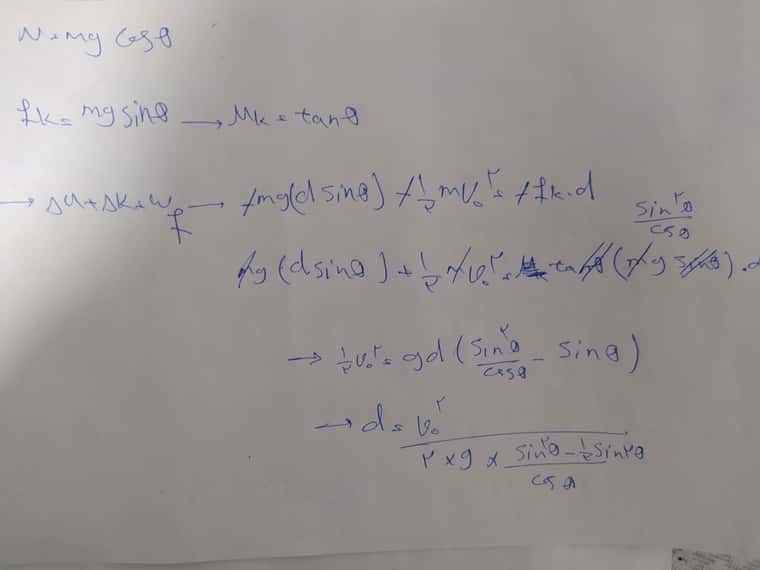 N = mg cosθ
fk = mg sinθ → μk = tanθ
→ ΔU + Δk = Wf → +mg(d sinθ) + ½ m v₀² = + fk.d
sin²θ / cosθ
mg(d sinθ) + ½ m v₀² = tanθ (mg sinθ).d
→ ½ v₀² = gd ( sin²θ / cosθ - sinθ )
→ d = v₀² / ۲ × g × (sin²θ - ½ sin۲θ / cosθ)